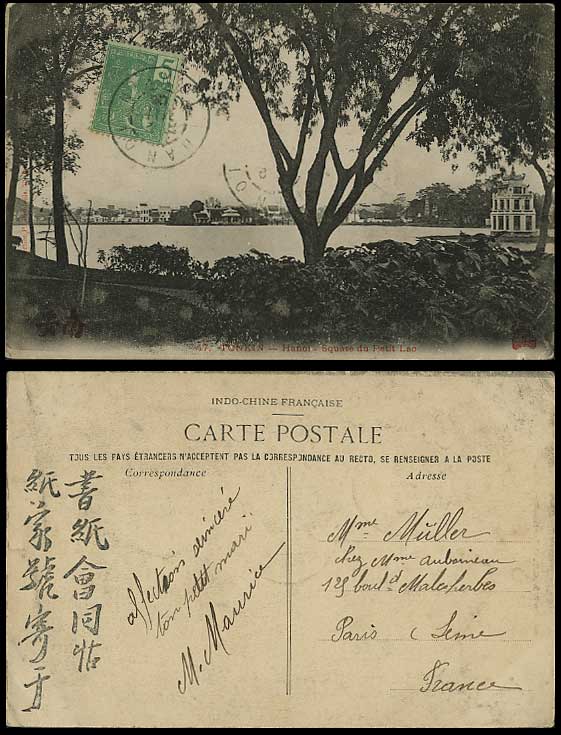 47. TONKIN — Hanoi - Square du Petit Lac
INDO-CHINE FRANÇAISE
CARTE POSTALE
TOUS LES PAYS ÉTRANGERS N'ACCEPTENT PAS LA CORRESPONDANCE AU RECTO, SE RENSEIGNER A LA POSTE
Correspondance
Adresse
書紙會同帖
紙家號寄于
affection sincère
ton petit mari
M. Maurice
Mme Müller
chez Mme Aubineau
125 boul.d Malesherbes
Paris (Seine
France